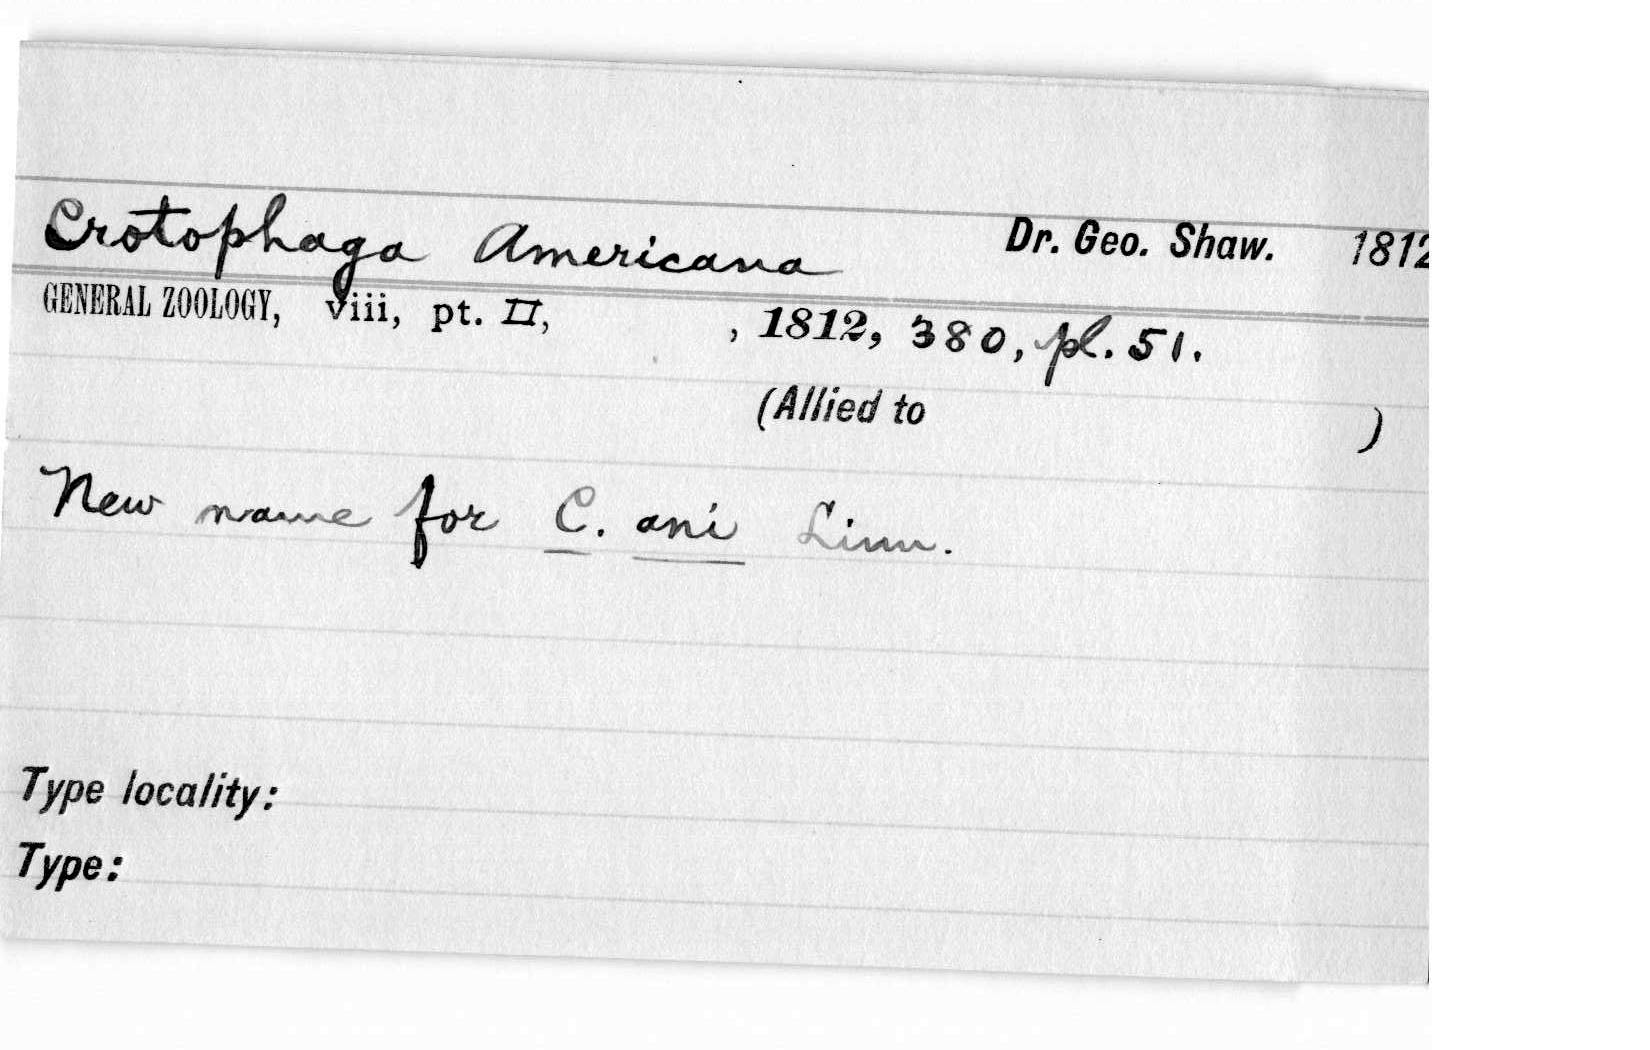 Crotophaga Americana Dr. Geo. Shaw. 1812
GENERAL ZOOLOGY, viii, pt. II, , 1812, 380, pl. 51.
(Allied to )
New name for C. ani Linn.
Type locality:
Type: